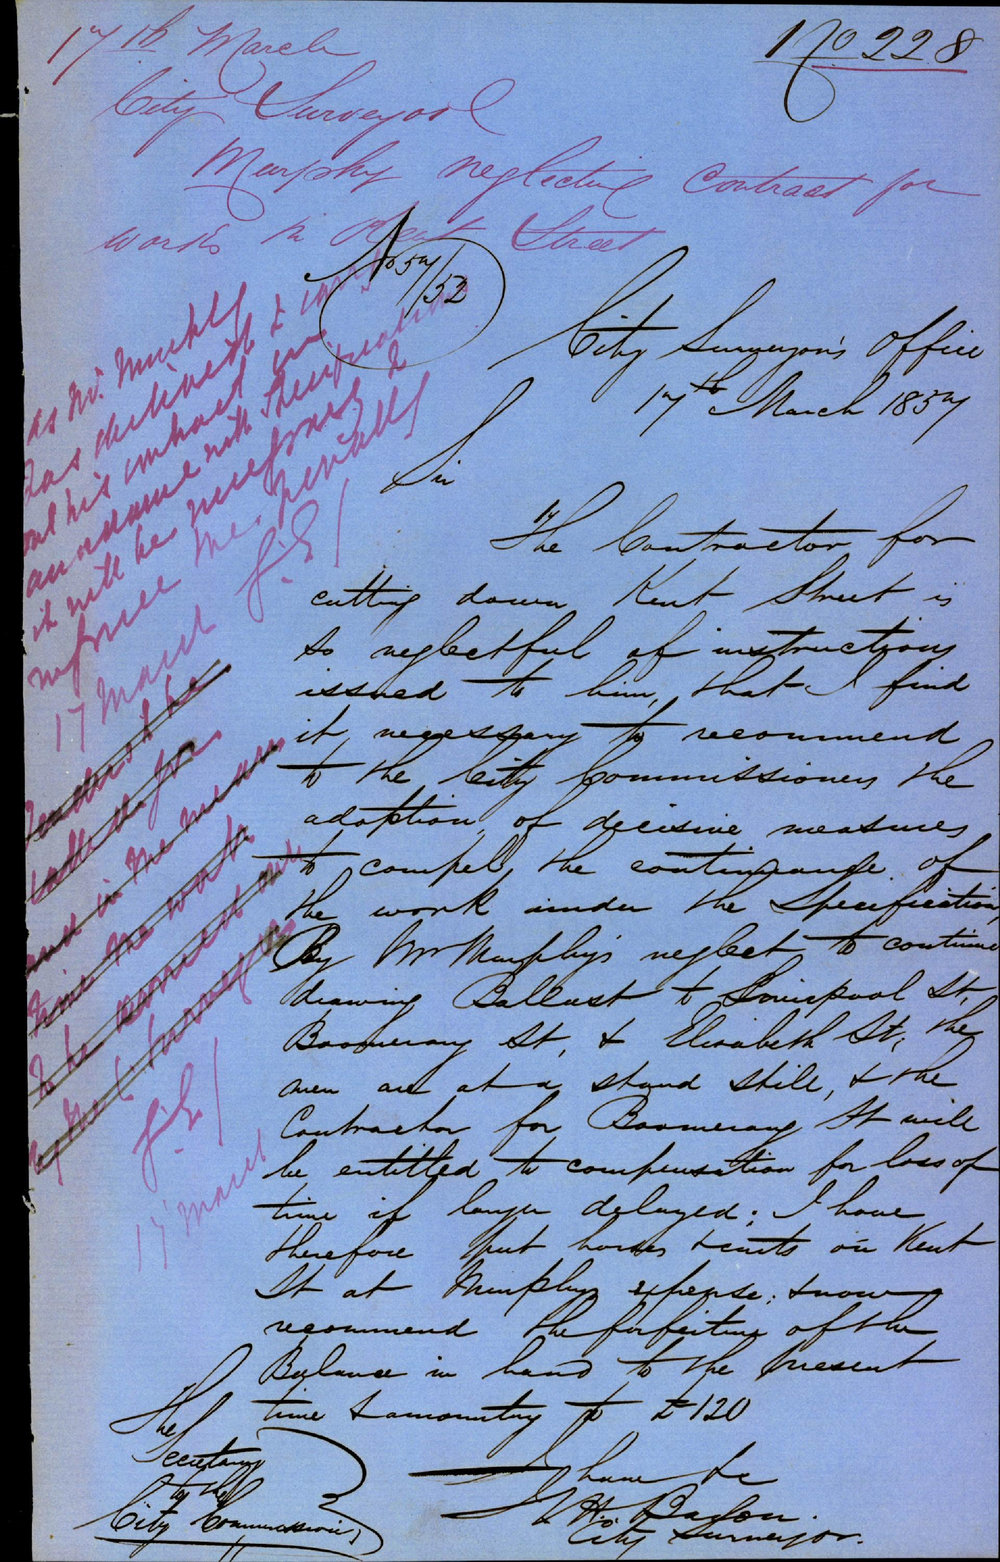 No 228
17th March
City Surveyor
Murphy neglecting contract for
works in Kent Street
No 57/52
City Surveyor's Office
17th March 1857
Sir
The Contractor for
cutting down Kent Street is
so neglectful of instructions
issued to him, that I find
it necessary to recommend
to the City Commissioners the
adoption of decisive measures
to compel the continuance of
the work under the Specification
By Mr Murphy's neglect to continue
drawing Ballast to Liverpool St,
Boomerang St, & Elizabeth St, the
men are at a stand still, & the
Contractor for Boomerang St will
be entitled to compensation for loss of
time if longer delayed; I have
therefore put horses & carts on Kent
St at Murphys expense; & now
recommend the forfeiture of the
Balance in hand to the present
time & amounting to £120
I have &c
City Surveyor.
The
Secretary
to the
City Commissioners
As Mr. Murphy
has declined to carry
out his contract in
accordance with the Specifications
it will be necessary to
enforce the penalty
17 March
be
called for
and in the mean
time the work
to be carried out
by the C Surveyor
17 March